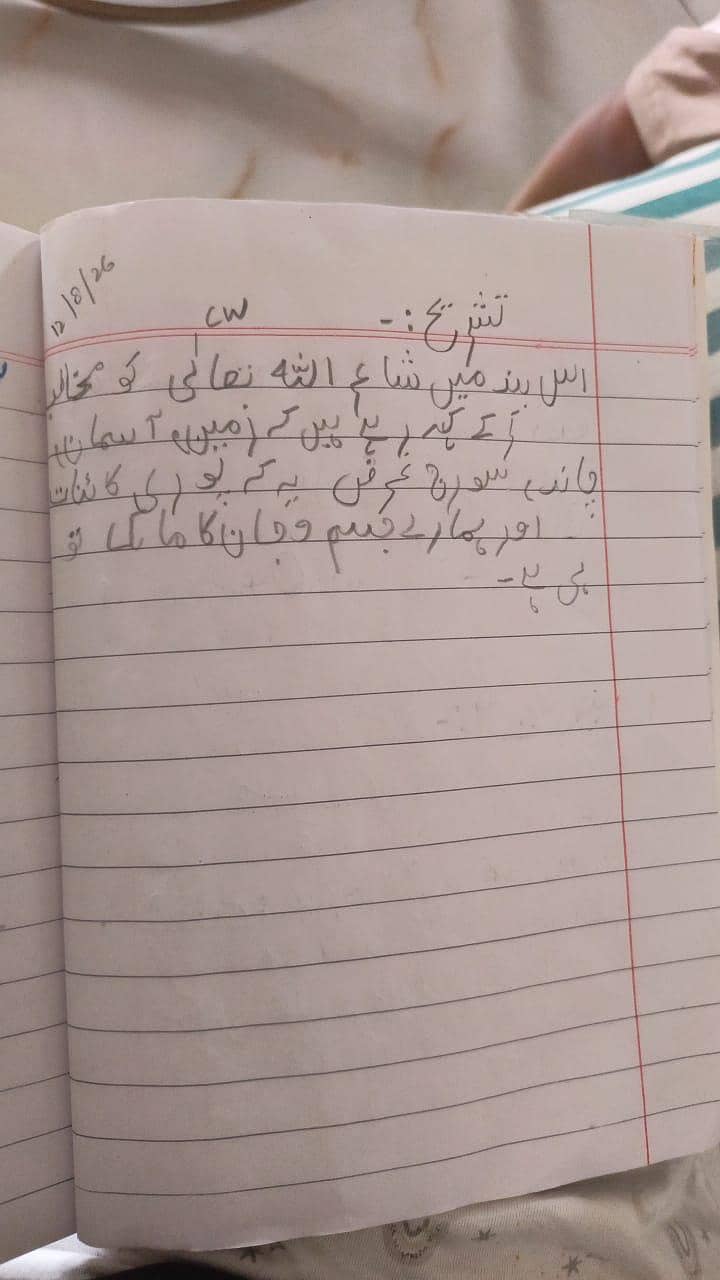 12/8/26
CW
تشریح :-
اس بند میں شاعر اللہ تعالٰی کو مخاطب
کر کے کہہ رہے ہیں کہ زمین، آسمان،
چاند، سورج غرض یہ کہ پوری کائنات
اور ہمارے جسم و جان کا مالک تو
ہی ہے -